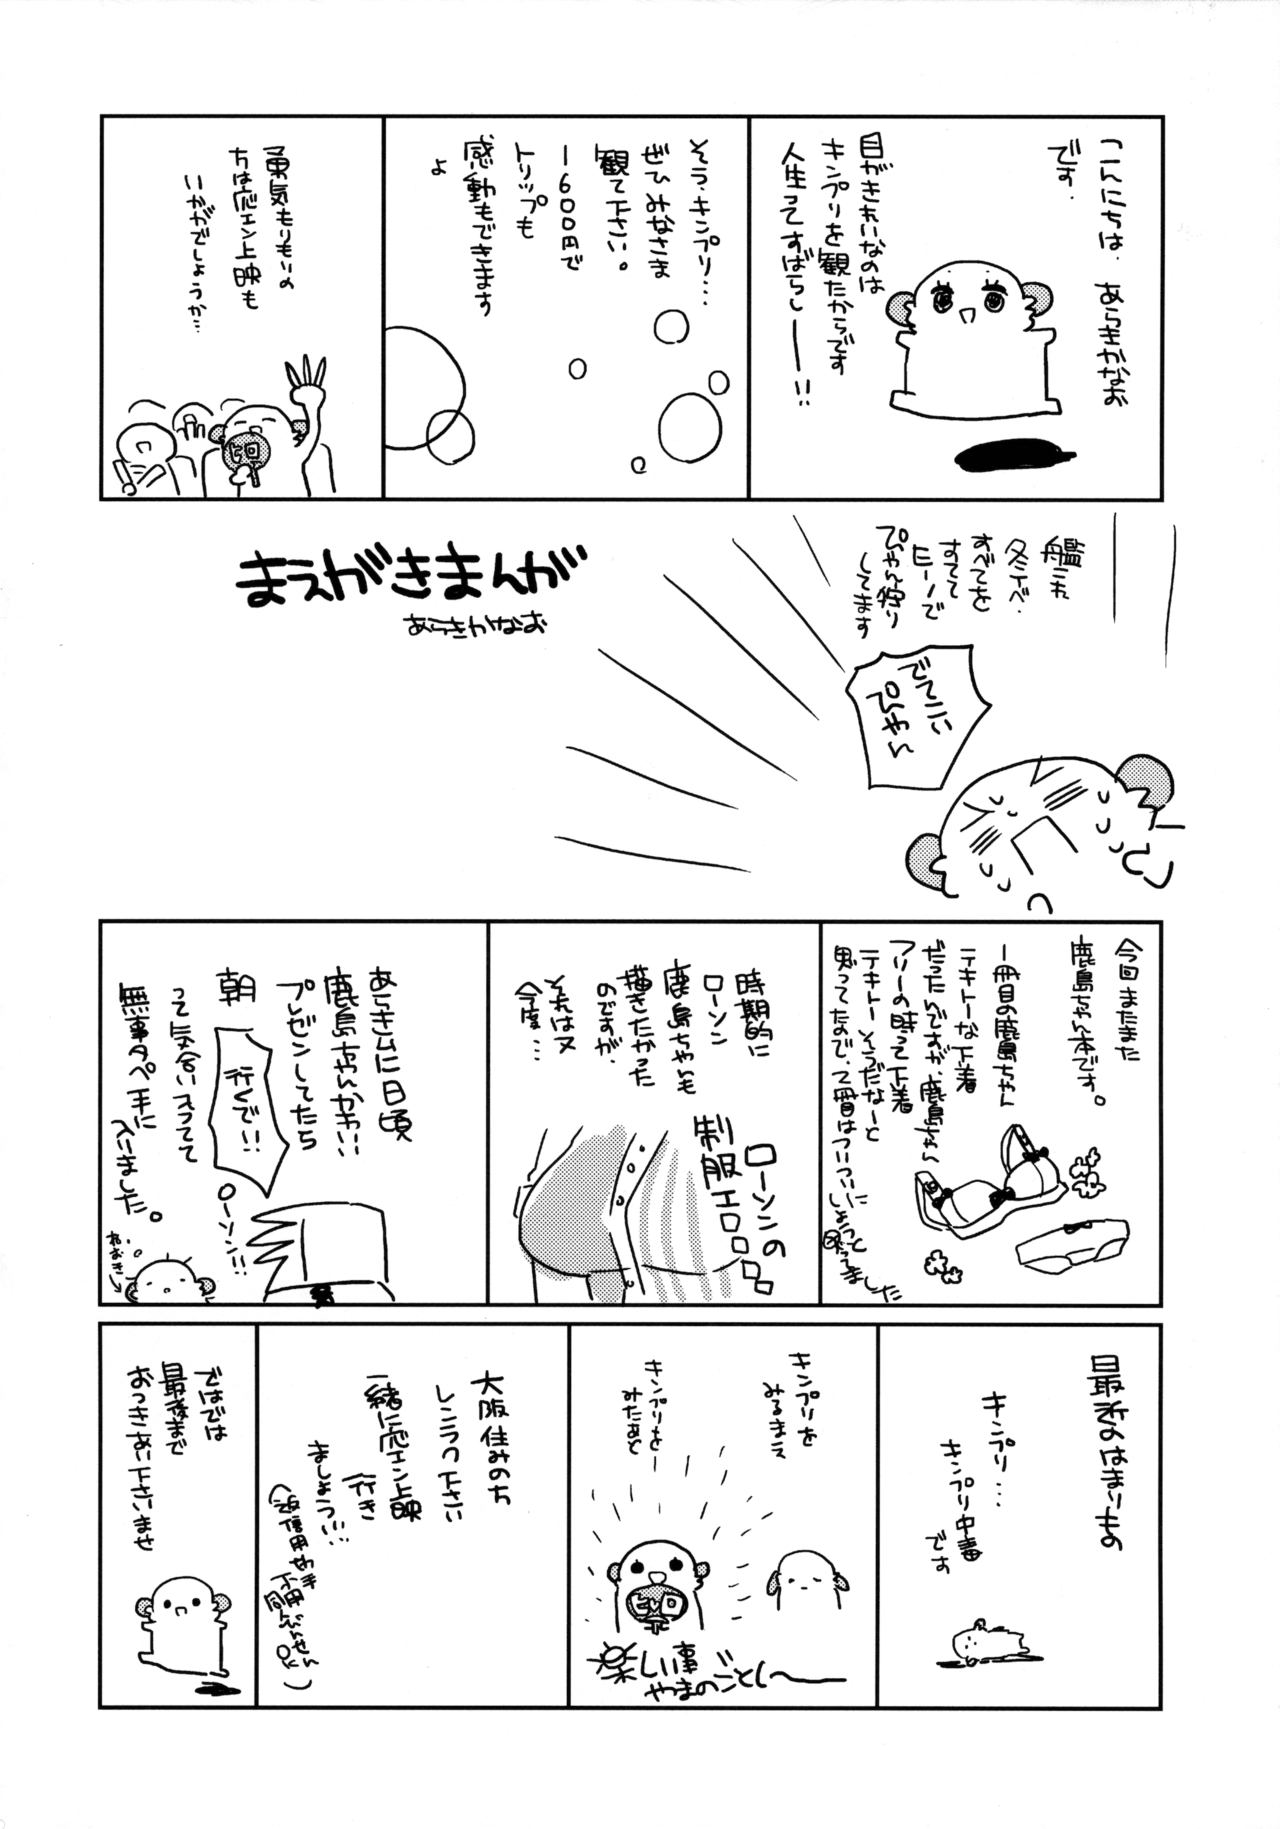 こんにちは、あらきかなお
です。
目がきれいなのは
キンプリを観たからです
人生ってすばらしー!!
そう、キンプリ…
ぜひみなさま
観て下さい。
1600円で
トリップも
感動もできます
よ
勇気もりもりの
方は応エン上映も
いかがでしょうか…
ヒロ
まえがきまんが
あらきかなお
艦これ
冬イベ、
すべてを
すてて
E-1で
ぴゃん狩り
してます
でてこい
ぴゃん
今回またまた
鹿島ちゃん本です。
一冊目の鹿島ちゃん
テキトーな下着
だったんですが、鹿島ちゃん
フリーの時って下着
テキトーそうだなーと
思ってたので、2冊目はついついに
しょうっと
ってました
時期的に
ローソン
鹿島ちゃんも
描きたかった
のですが、
それは又
今度…
ローソンの
制服エロロロロ
あらきムに日頃
鹿島ちゃんかわいい
プレゼンしてたら
朝
行くで!!
ローソン!!
って気合い入ってて
無事タペ手に
入りました。
ねおき
最近のはまりもの
キンプリ…
キンプリ中毒
です
キンプリを
みるまえ
キンプリをー
みたあと
ヒロ
楽しい事
やまのごとしー
大阪住みの方
レンラク下さい
一緒に応エン上映
行き
ましょう…
(返信用切手
不用
同人びんせん
OK)
ではでは
最後まで
おつきあい下さいませ